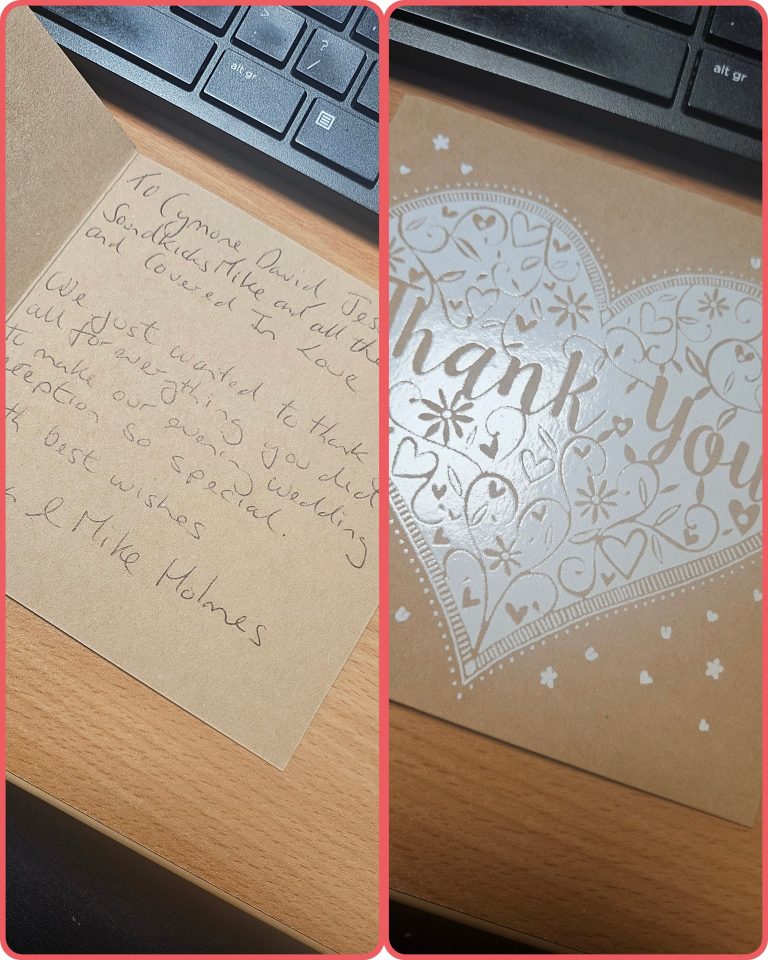 alt gr
?
/
To Cymone David, Jess
Soundkicks Mike and all the
and Covered In Love
We just wanted to thank
all for everything you did
to make our evening wedding
eception so special.
th best wishes
& Mike Holmes
alt gr
Thank You